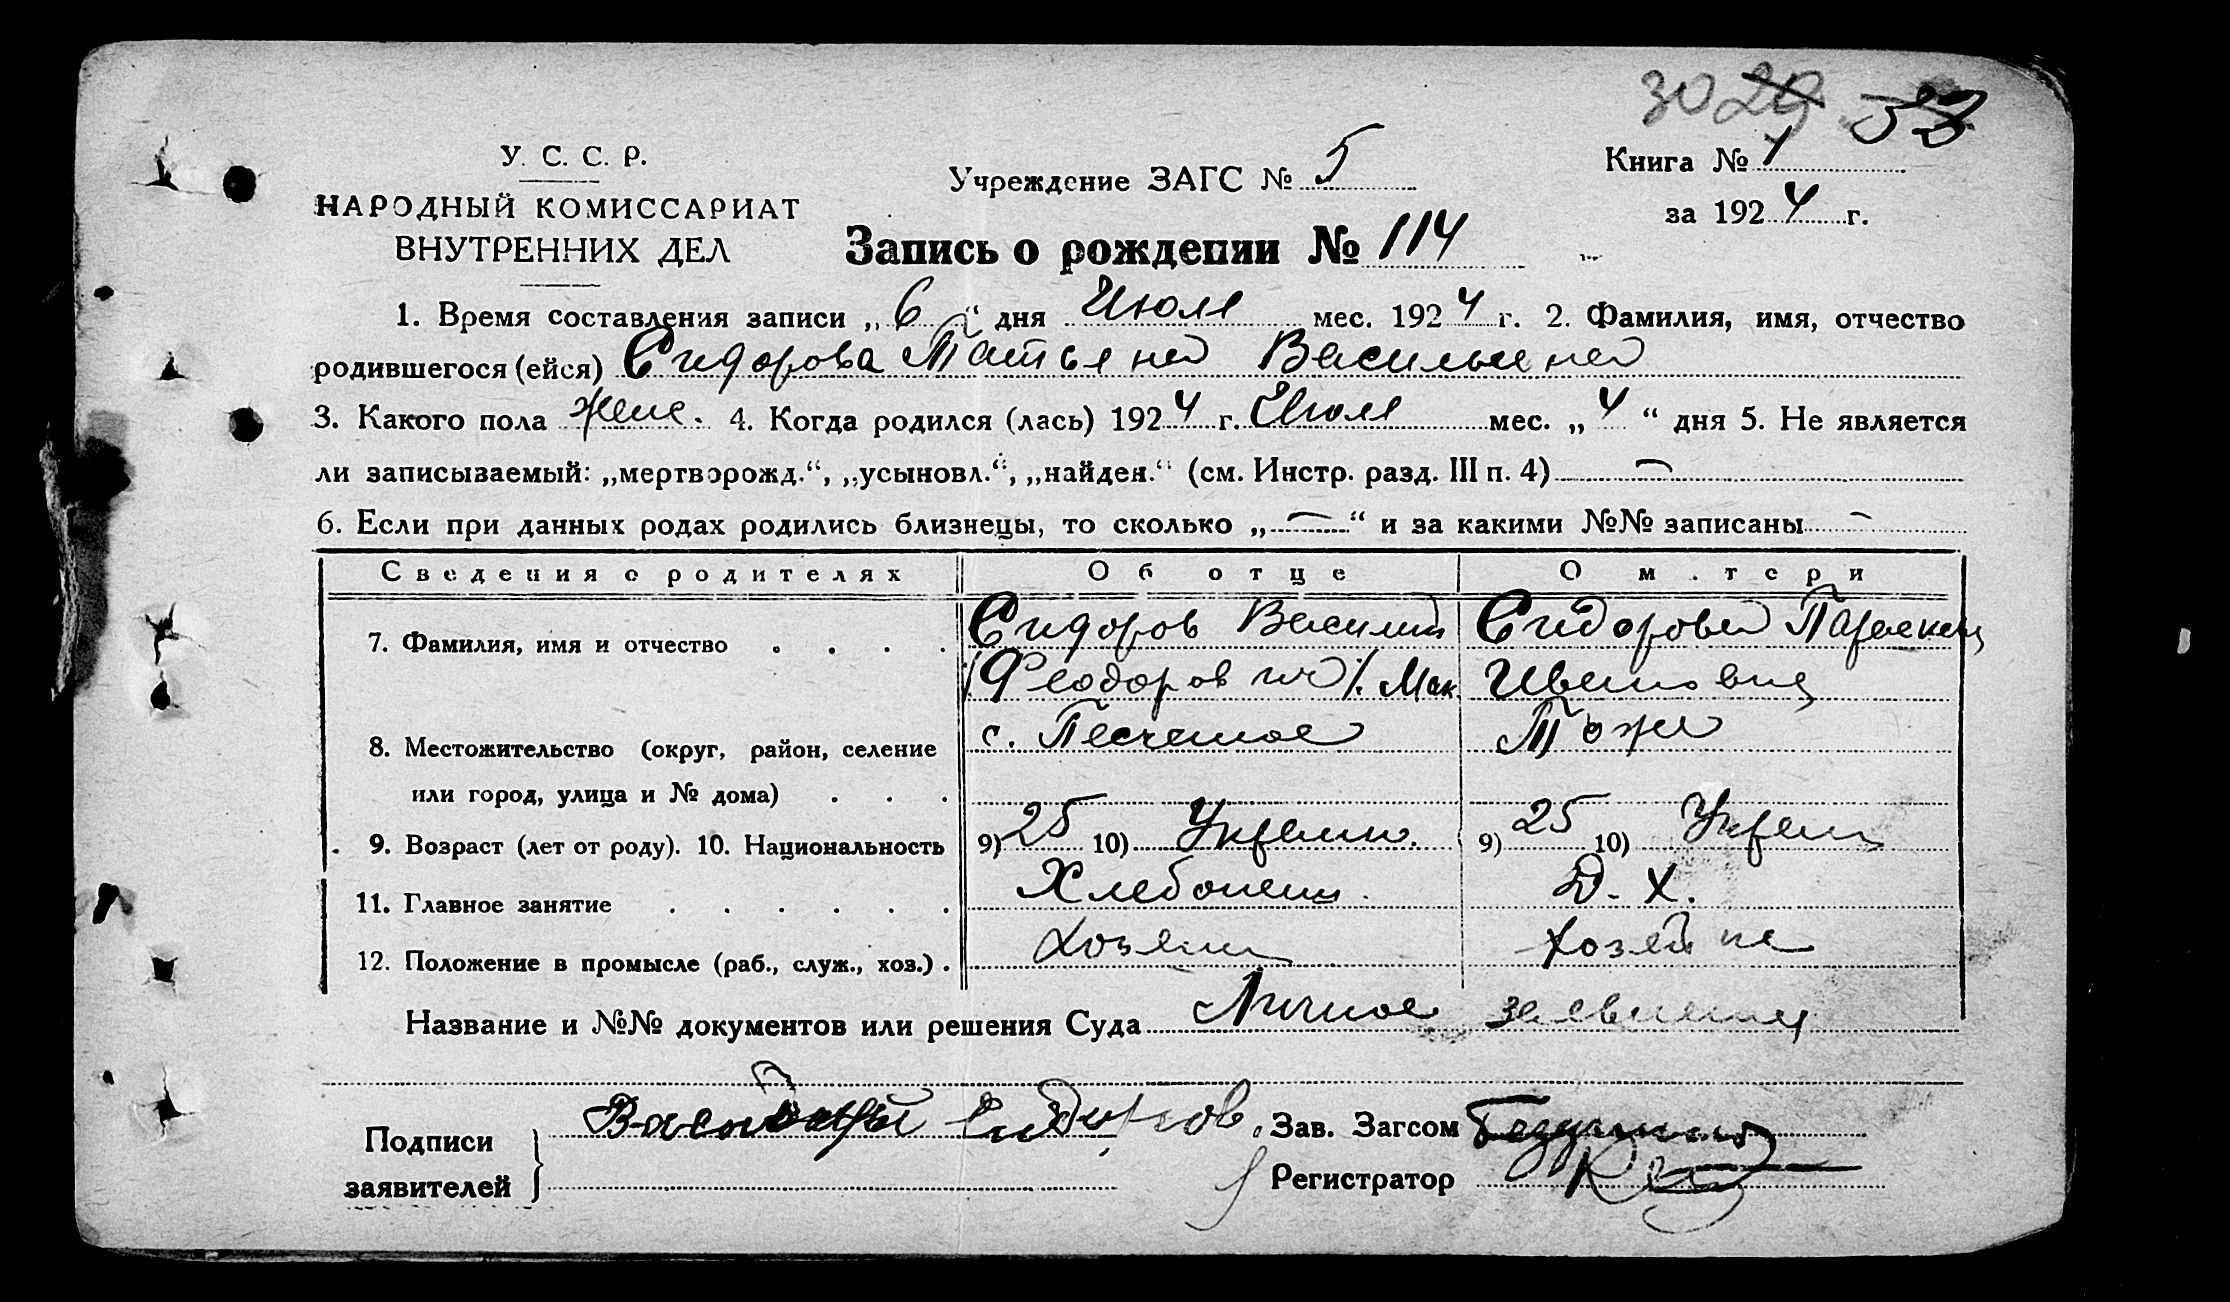 30 29 33
У. С. С. Р.
НАРОДНЫЙ КОМИССАРИАТ
ВНУТРЕННИХ ДЕЛ
Учреждение ЗАГС № 5
Книга № 1
за 1924 г.
Запись о рождении № 114
1. Время составления записи „6“ дня Июля мес. 1924 г. 2. Фамилия, имя, отчество
родившегося (ейся) Сидорова Татьяна Васильевна
3. Какого пола женс. 4. Когда родился (лась) 1924 г. Июля мес. „4“ дня 5. Не является
ли записываемый: „мертворожд.“, „усыновл.“, „найден.“ (см. Инстр. разд. III п. 4) —
6. Если при данных родах родились близнецы, то сколько „—“ и за какими №№ записаны —
Сведения о родителях Об отце О м.тери
7. Фамилия, имя и отчество . . . . Сидоров Василий Сидорова Параскева
/Феодорович/. Мак. Ивановна
8. Местожительство (округ, район, селение с. Песчаное Тоже
или город, улица и № дома) . . .
9. Возраст (лет от роду). 10. Национальность 9) 25 10) Украин. 9) 25 10) Украин
11. Главное занятие . . . . . . Хлебопашец Д. Х.
12. Положение в промысле (раб., служ., хоз.) . Хозяин хозяйка
Название и №№ документов или решения Суда Личное заявление
Подписи
заявителей
Сидоров
Зав. Загсом
Регистратор